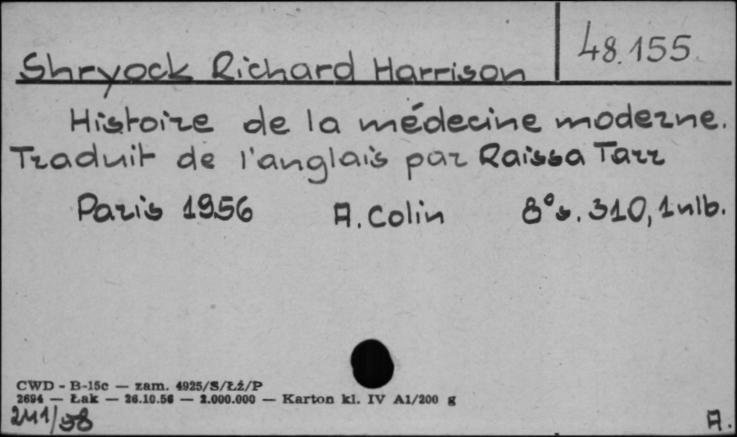 Shryock Richard Harrison
48.155
Histoire de la médecine moderne.
Traduit de l'anglais par Raissa Tarr
Paris 1956 A. Colin 8° s. 310, 1 nlb.
CWD - B-15c — zam. 4925/S/Łż/P
2694 — Łak — 26.10.56 — 2.000.000 — Karton kl. IV A1/200 g
241/58
A.